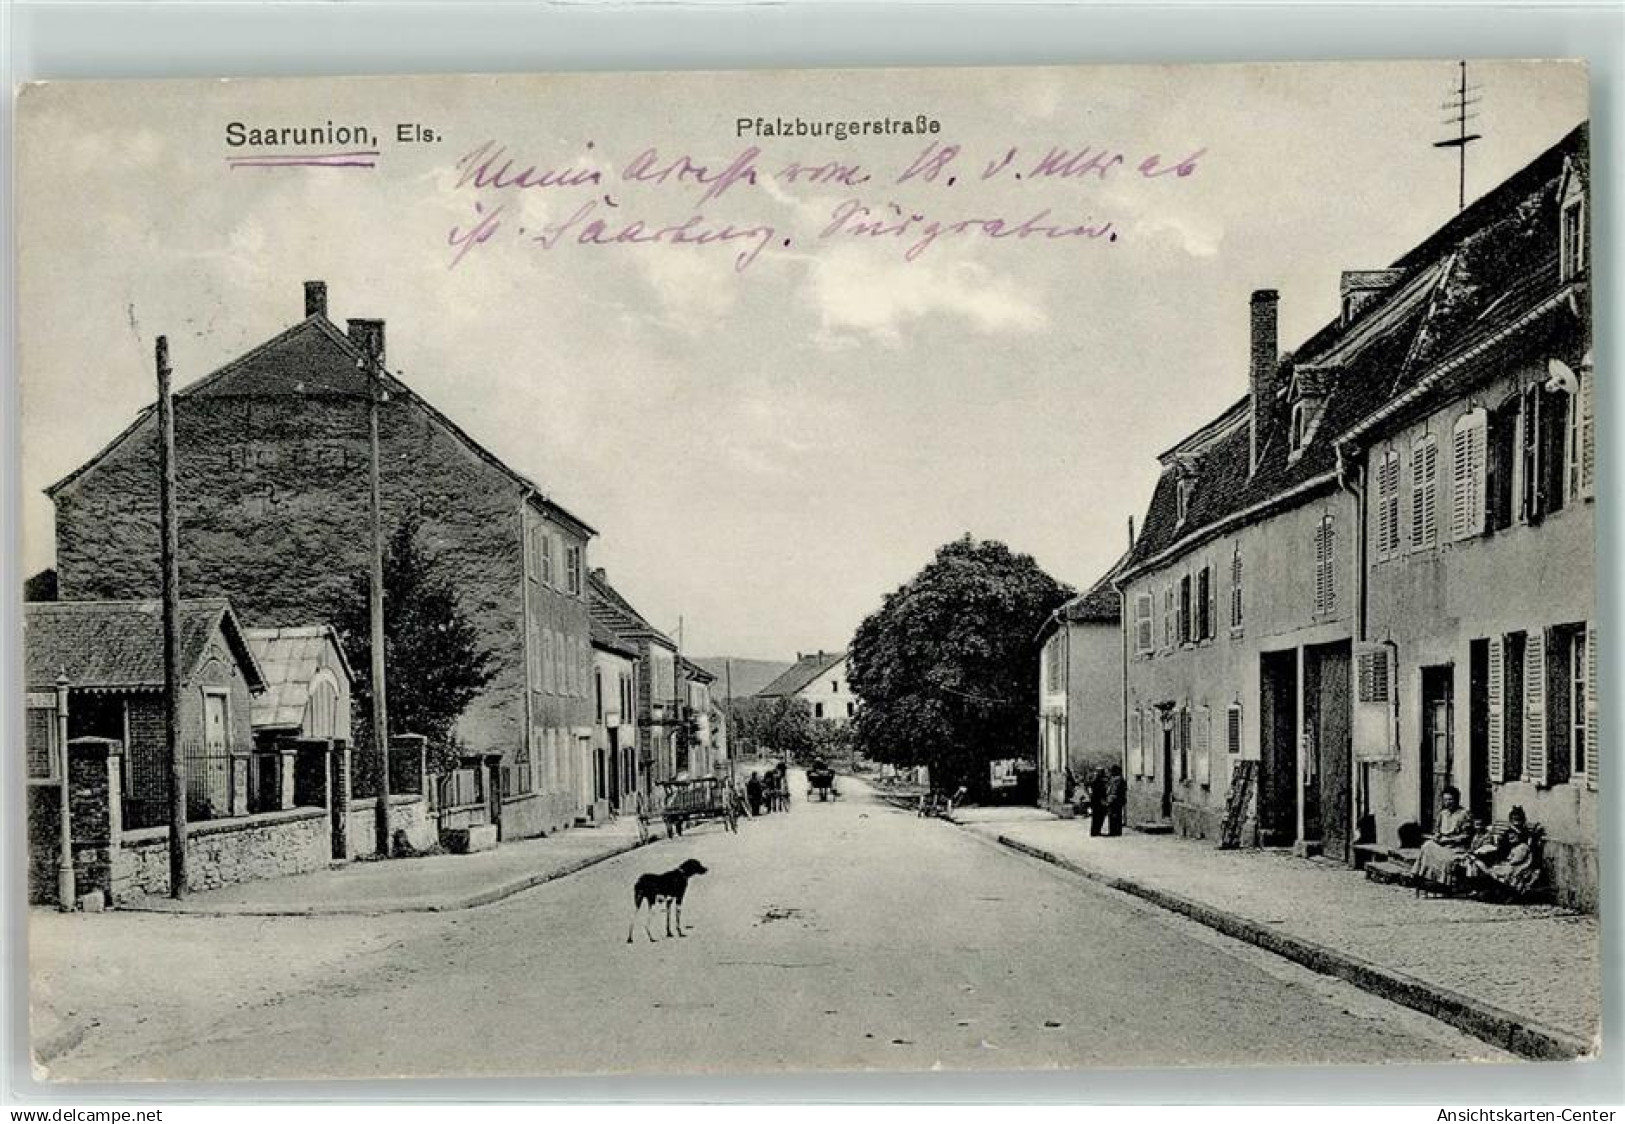 Saarunion, Els.
Pfalzburgerstraße
Meine Adresse vom 18. d. Mts ab
ist Saarburg.
www.delcampe.net
Ansichtskarten-Center